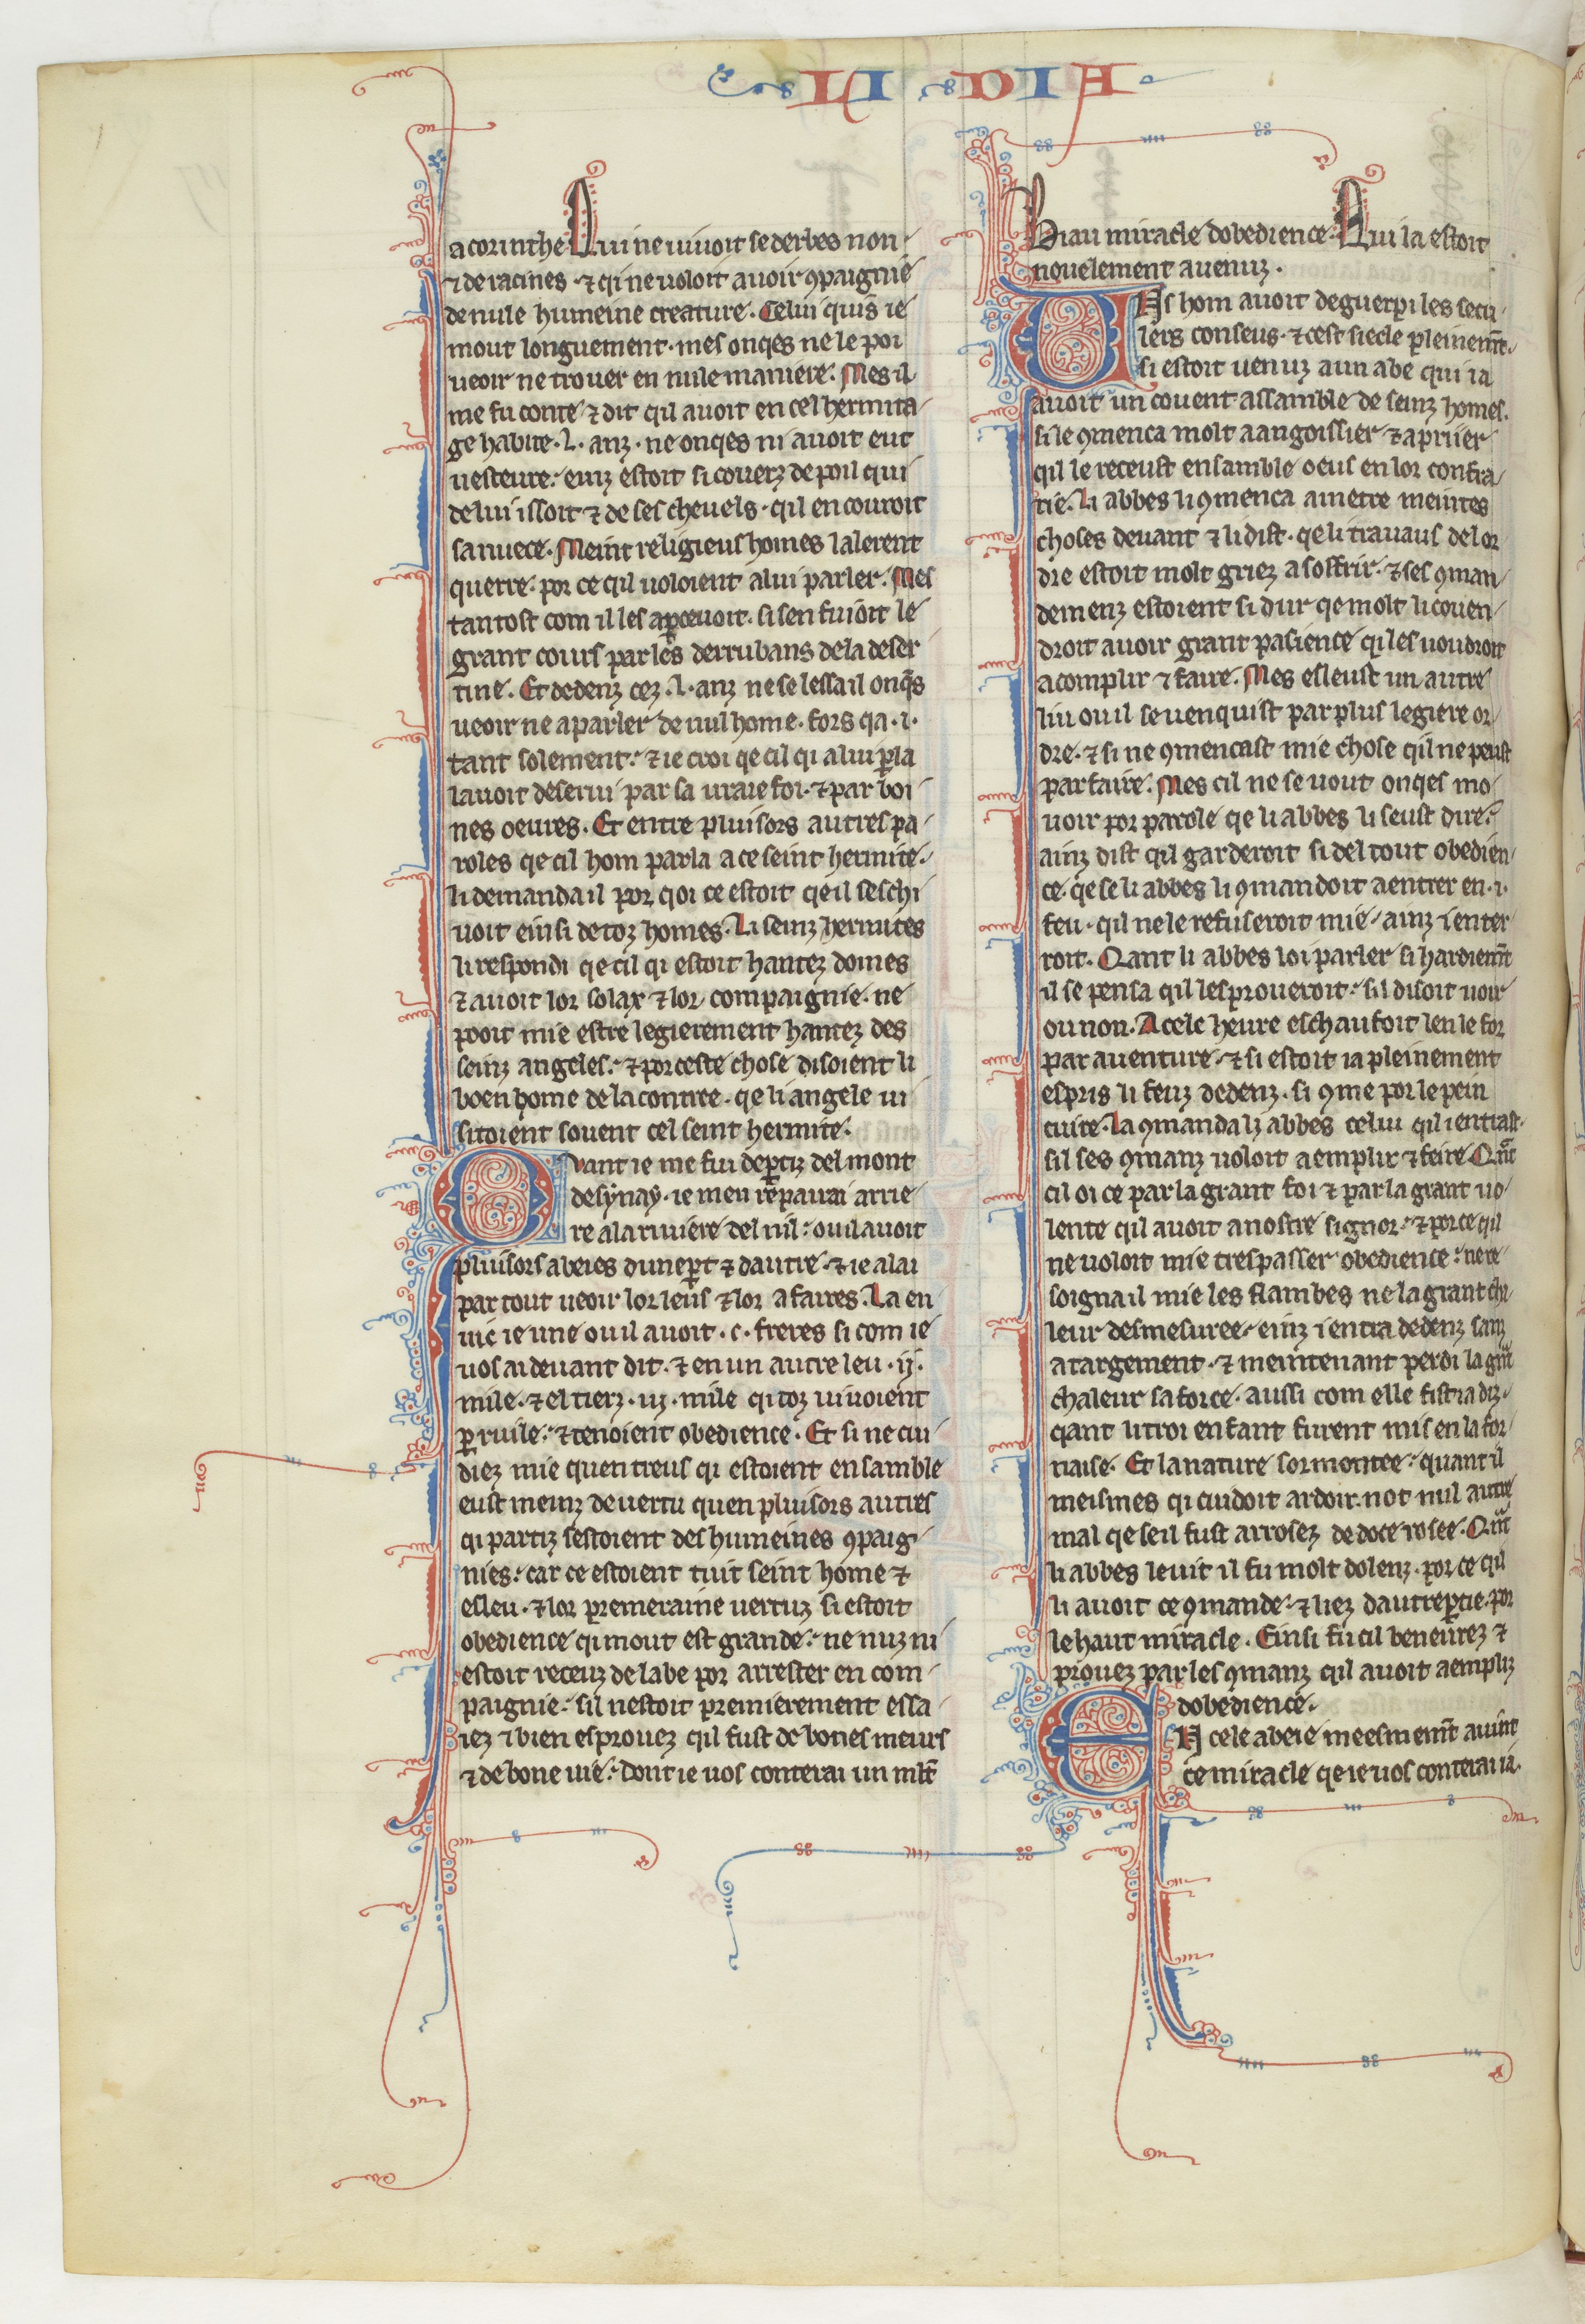 LI UIA
a corinthe. Qui ne uiuoit se derbes non
⁊ de racines. ⁊ qi ne uoloit auoir ꝯpaignie
de nule humeine creature. Celui quis ie
mout longuement. mes onqes ne le poi
ueoir ne trouer en nule maniere. Mes il
me fu conte ⁊ dit qil auoit en cel hermita
ge habite .L. anz. ne onqes ni auoit eut
uesteure. einz estoit si couerz de poil qui
de lui issoit ⁊ de ses cheuels. qil en couroit
sa nuece. Meint religieus homes lalerent
querre. por ce qil uoloient a lui parler. Mes
tantost com il les aꝑceuoit. si sen fuioit le
grant cours par les derrubans de la deser
tine. Et dedenz cez .L. anz ne se lessa il onqes
ueoir ne aparler de nul home. fors qa .i.
tant solement. ⁊ ie croi qe cil qi a lui ꝑla
lauoit deserui par sa uraie foi. ⁊ par boi
nes oeures. Et entre pluisors autres pa
roles qe cil hom parla a ce seint hermite.
li demanda il por qoi ce estoit qe il seschi
uoit einsi de toz homes. Li seinz hermites
li respondi qe cil qi estoit hantez domes
⁊ auoit lor solaz ⁊ lor compaignie. ne
pooit mie estre legierement hantez des
seinz angeles. ⁊ por ceste chose disoient li
boen home de la contree. qe li angele ui
sitoient souent cel seint hermite.
Quant ie me fui deꝑtiz del mont
de synay. ie men repairai arrie
re a la riuiere del nil. ou il auoit
pluisors abeies dune ꝑt ⁊ dautre. ⁊ ie alai
par tout ueoir lor leus ⁊ lor afaires. La en
uic ie une ou il auoit .c. freres si com ie
uos ai deuant dit. ⁊ en un autre leu .ij.
mile. ⁊ el tierz .iij. mile qi toz uiuoient
ꝑ ruile. ⁊ tenoient obedience. Et si ne cui
diez mie quentreus qi estoient ensamble
eust meinz de uertu quen pluisors autres
qi partiz sestoient des humeines ꝯpaig
nies. car ce estoient tuit seint home ⁊
esleu. ⁊ lor premeraine uertuz si estoit
obedience qi mout est grande. ne nuz ni
estoit receuz de labe por arrester en com
paignie. sil nestoit premierement essa
iez ⁊ bien esprouez qil fust de bones meurs
⁊ de bone uie. Dont ie uos conterai un mlt̄
biau miracle dobedience. Qui la estoit
nouelement auenuz.
Us hom auoit deguerpi les secu
lers conseus. ⁊ cest siecle pleinemēt.
si estoit uenuz a un abe qui ia
auoit un couent assamble de seinz homes.
si le ꝯmenca molt a angoissier ⁊ a priier
qil le receust ensamble oeus en lor confra
rie. Li abbes li ꝯmenca a metre meintes
choses deuant ⁊ li dist. qe li trauaus de lor
dre estoit molt griez a soffrir. ⁊ ses ꝯman
demenz estoient si dur qe molt li couen
droit auoir grant pasience qi les uoudroit
acomplir ⁊ faire. Mes esleust un autre
liu ou il se uenquist par plus legiere or
dre. ⁊ si ne ꝯmencast mie chose qil ne peust
parfaire. Mes cil ne se uout onqes mo
uoir por parole qe li abbes li seust dire.
ainz dist qil garderoit si del tout obedien
ce. qe se li abbes li ꝯmandoit a entrer en .i.
feu. qil ne le refuseroit mie. ainz i enter
roit. Qant li abbes loi parler si hardiemēt
il se pensa qil lesproueroit. sil disoit uoir
ou non. A cele heure eschaufoit len le for
par auenture. ⁊ si estoit ia pleinement
espris li feuz dedenz. si ꝯme por le pein
cuire. La ꝯmanda li abbes celui qil i entrast.
sil ses ꝯmanz uoloit aemplir ⁊ feire. Qāt
cil oi ce par la grant foi ⁊ par la grant uo
lente qil auoit a nostre signor. ⁊ por ce qil
ne uoloit mie trespasser obedience. ne re
soigna il mie les flambes ne la grant cha
leur desmesuree. einz i entra dedenz sanz
atargement. ⁊ meintenant perdi la gñt
chaleur sa force. aussi com elle fist ia diz.
qant li troi enfant furent mis en la for
naise. Et la nature sormontee. quant il
meismes qi cuidoit ardoir. not nul autre
mal qe se il fust arrosez de doce rosee. Qāt
li abbes le uit il fu molt dolenz. por ce qil
li auoit ce ꝯmande. ⁊ liez dautre ꝑtie. por
le haut miracle. Einsi fu cil beneurez ⁊
prouez par les ꝯmanz qil auoit aempliz
dobedience.
En cele abeie meesmemēt auint
ce miracle qe ie uos conterai ia.